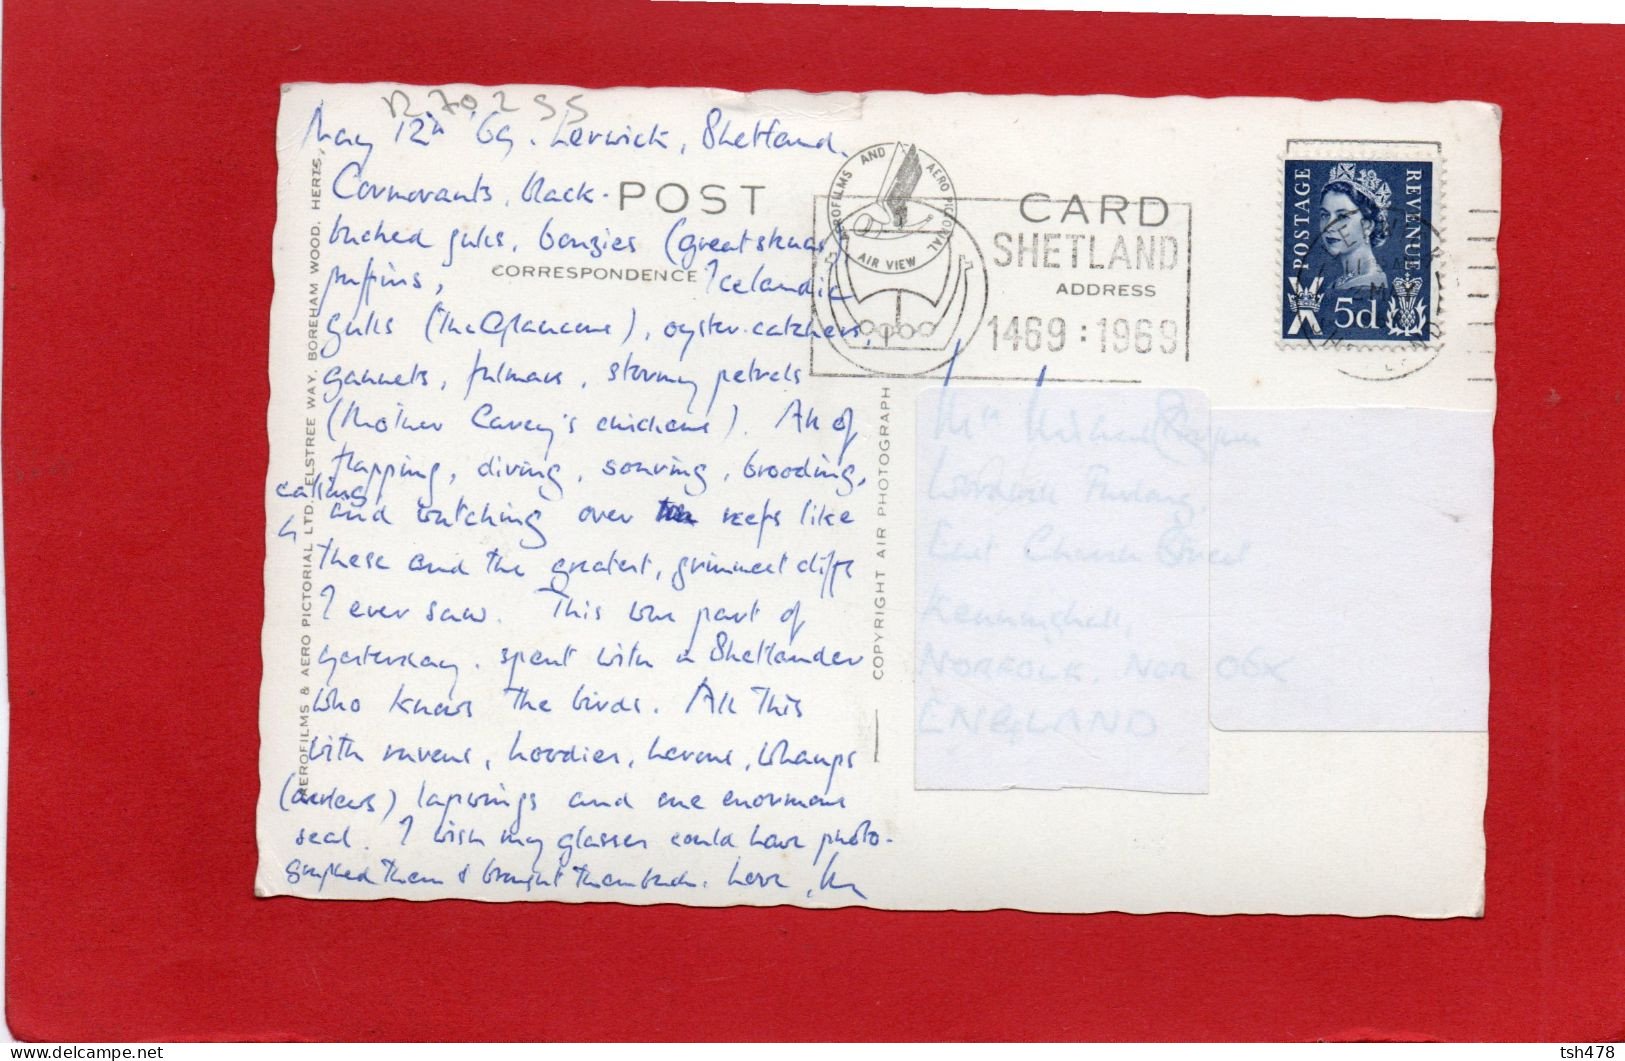 R 70255
May 12th '69. Lerwick, Shetland.
Cormorants, black-
backed gulls, bonxies (great skuas)
puffins, Icelandic
gulls (the Glaucous), oyster-catchers,
gannets, fulmars, stormy petrels
(Mother Carey's chickens). All of
flapping, diving, soaring, brooding,
calling
and watching over reefs like
these and the greatest, grimmest cliffs
I ever saw. This was part of
yesterday. spent with a Shetlander
who knows the birds. All this
with ravens, hoodies, herons, whaups
(curlews) lapwings and one enormous
seal. I wish my glasses could have photo-
graphed them & brought them back. Love,
POST CARD
CORRESPONDENCE
ADDRESS
AEROFILMS AND AERO PICTORIAL
AIR VIEW
SHETLAND
1469 : 1969
POSTAGE
REVENUE
5d
AEROFILMS & AERO PICTORIAL LTD. ELSTREE WAY, BOREHAM WOOD, HERTS.
COPYRIGHT AIR PHOTOGRAPH
East Church Street
Kenninghall,
NORFOLK. NOR 06X
ENGLAND
tsh478
delcampe.net